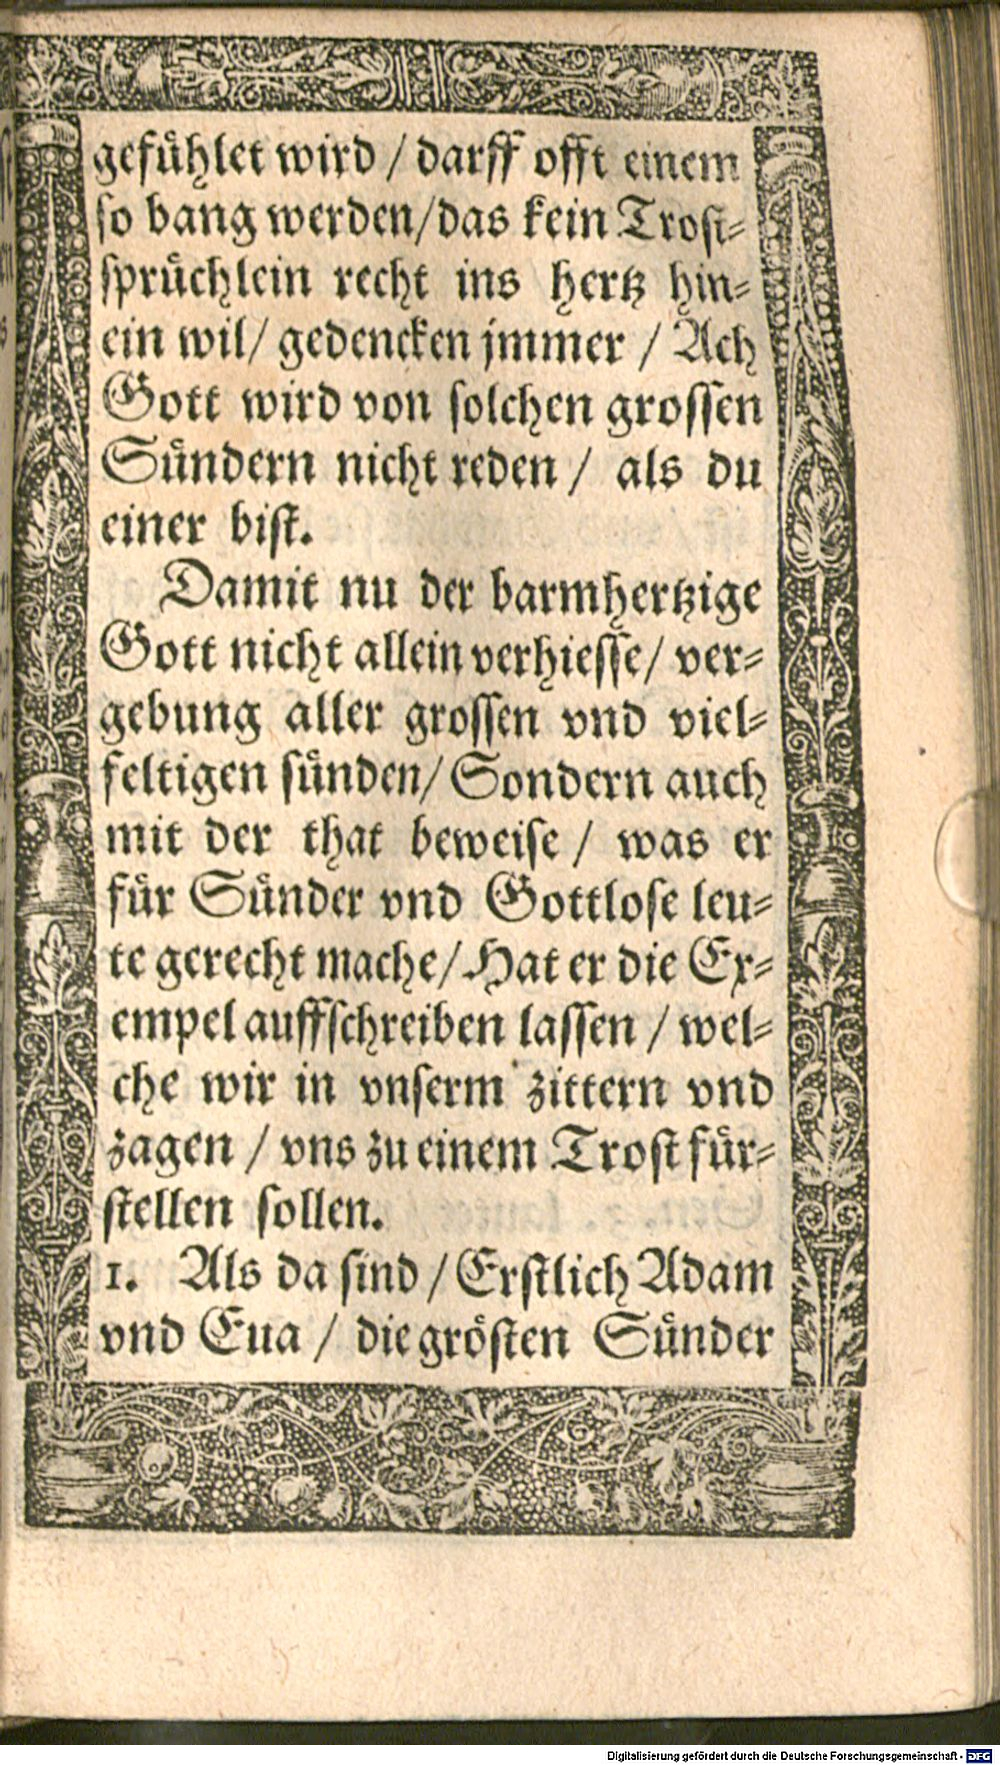 gefühlet wird / darff offt einem
so bang werden/das kein Trost-
sprüchlein recht ins hertz hin-
ein wil/ gedencken jmmer / Ach
Gott wird von solchen grossen
Sündern nicht reden / als du
einer bist.
Damit nu der barmhertzige
Gott nicht allein verhiesse/ ver-
gebung aller grossen vnd viel-
feltigen sünden/ Sondern auch
mit der that beweise / was er
für Sünder vnd Gottlose leu-
te gerecht mache/ Hat er die Ex-
empel auffschreiben lassen / wel-
che wir in vnserm zittern vnd
zagen / vns zu einem Trost für-
stellen sollen.
1. Als da sind / Erstlich Adam
vnd Eua / die grösten Sünder
Digitalisierung gefördert durch die Deutsche Forschungsgemeinschaft - DFG